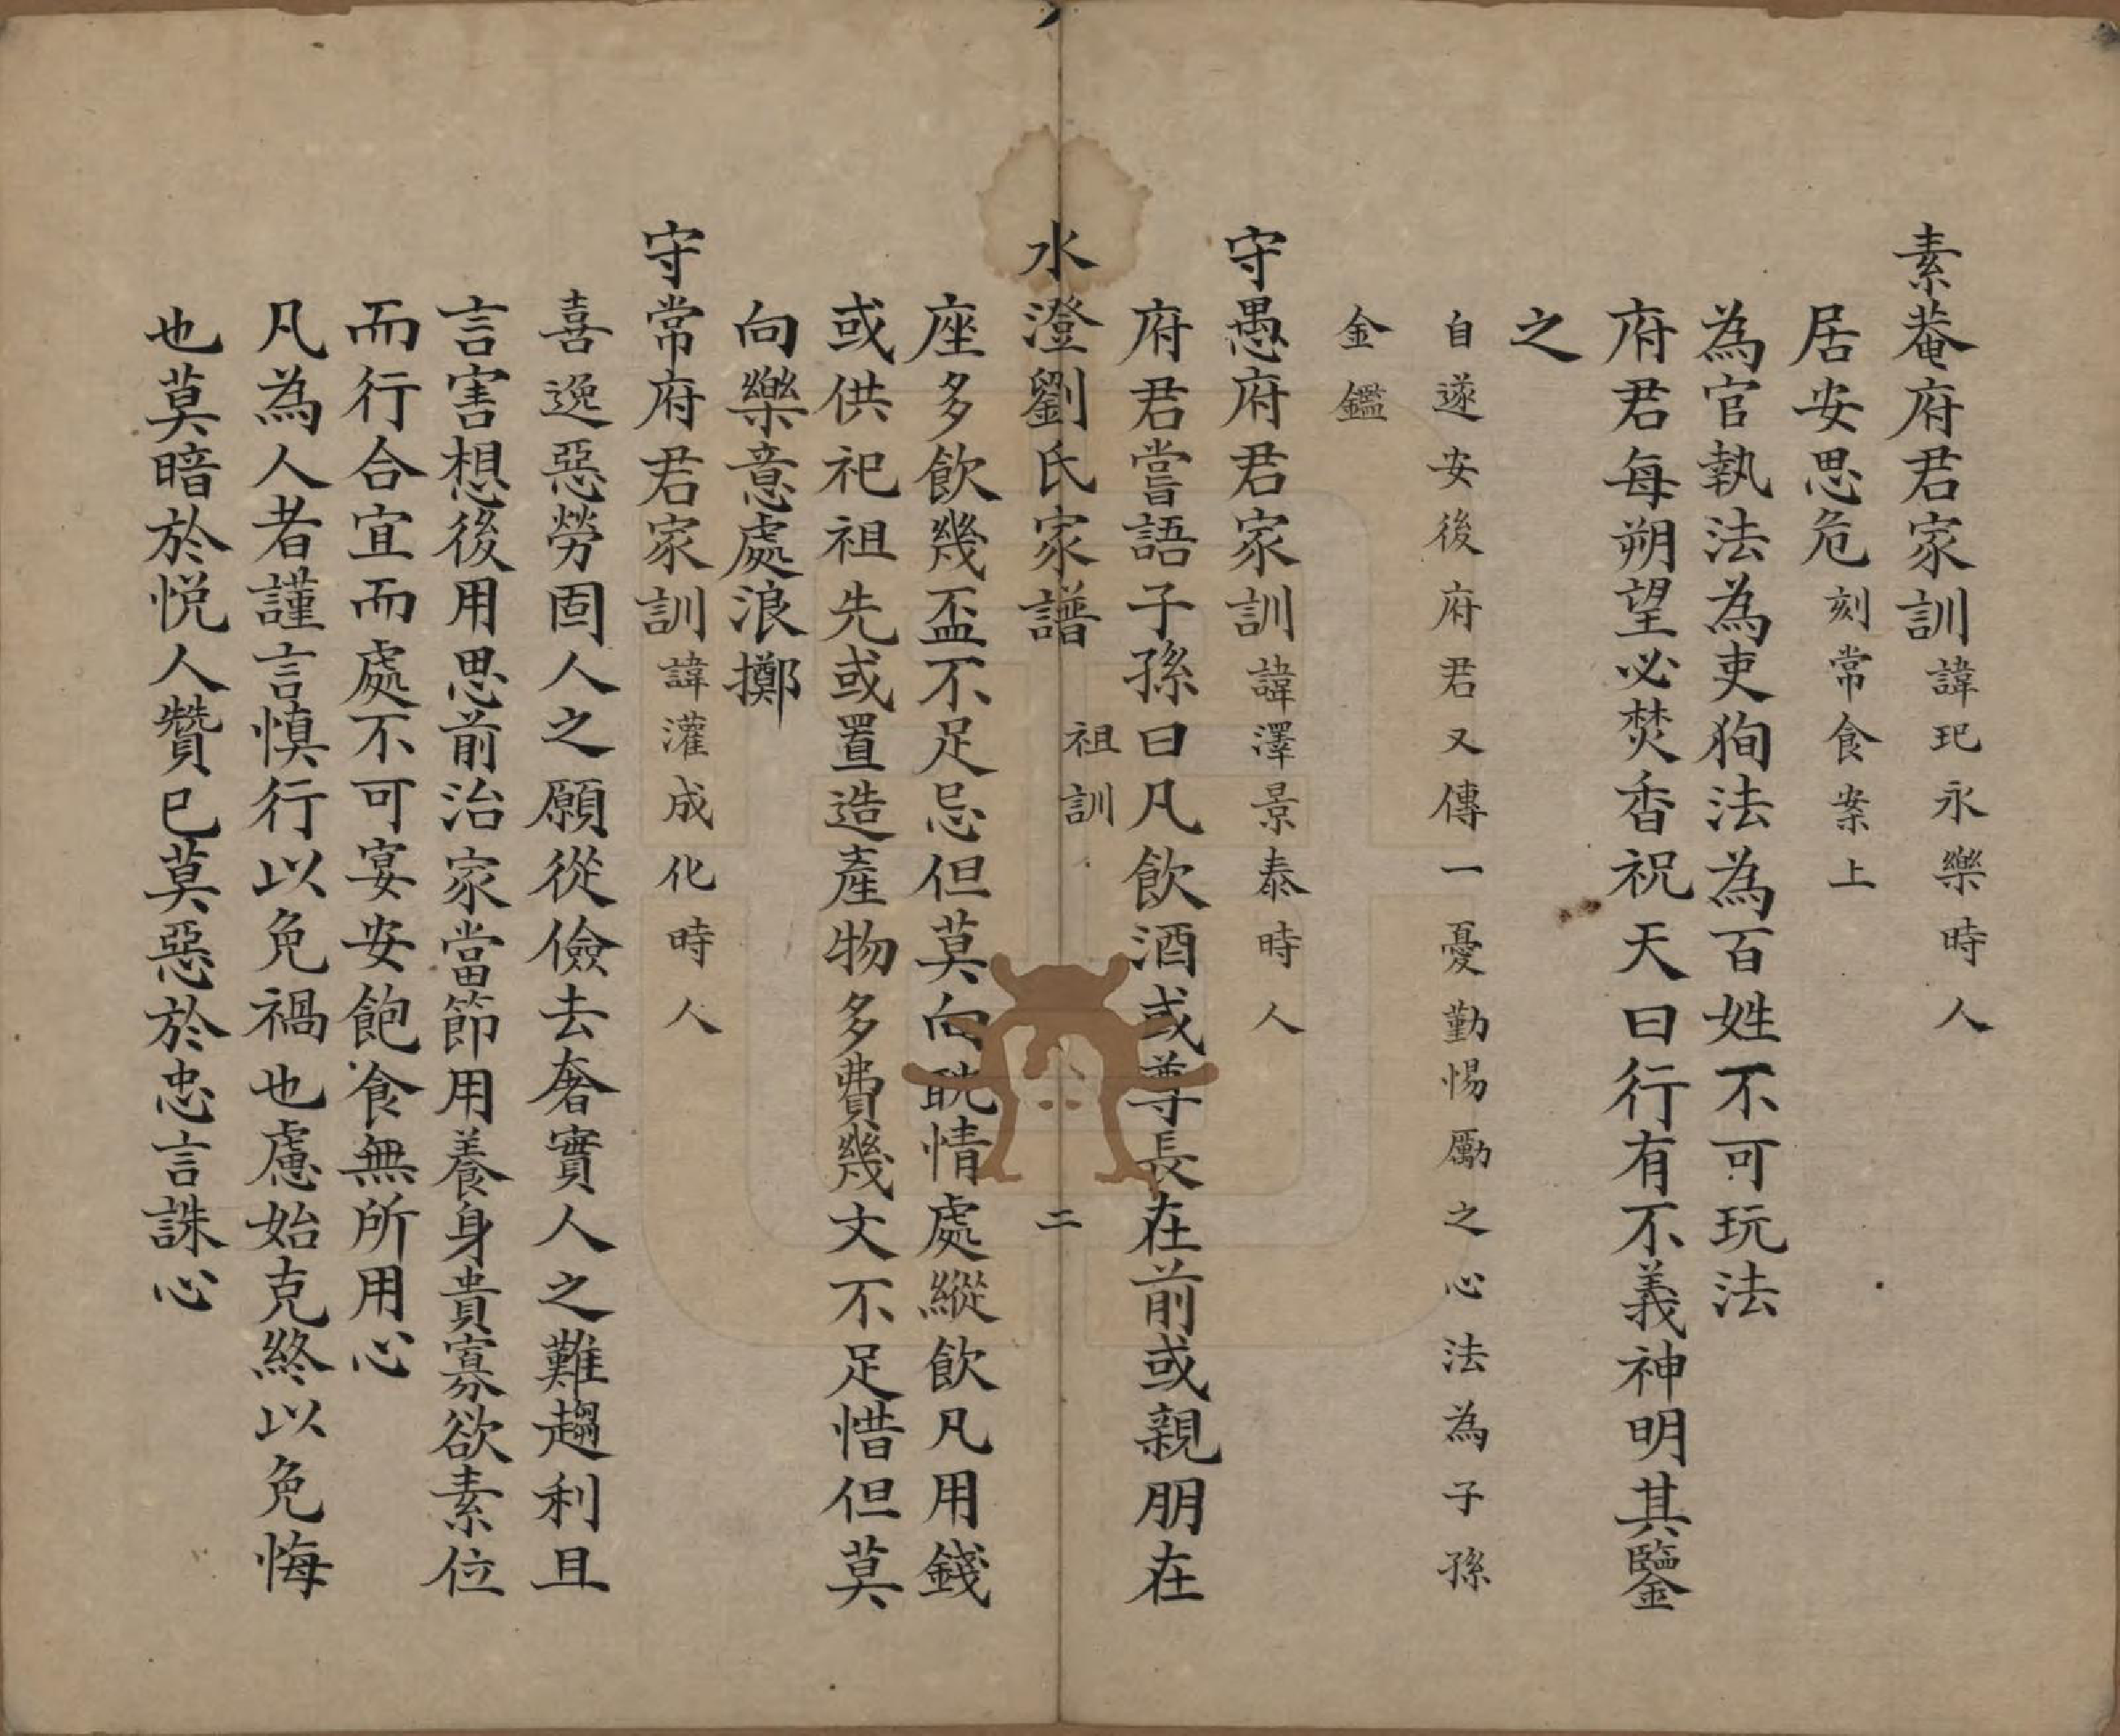 素菴府君家訓諱玘永樂時人
居安思危刻常食案上
為官執法為吏狥法為百姓不可玩法
府君每朔望必焚香祝天曰行有不義神明其鑒
之
自遂安後府君又傳一憂勤惕勵之心法為子孫
金鑑
守愚府君家訓諱澤景泰時人
府君嘗語子孫曰凡飲酒或尊長在前或親朋在
水澄劉氏家譜 祖訓 二
座多飲幾盃不足忌但莫向耽情處縱飲凡用錢
或供祀祖先或置造產物多費幾文不足惜但莫
向樂意處浪擲
守常府君家訓諱灌成化時人
喜逸惡勞固人之願從儉去奢實人之難趨利且
言害想後用思前治家當節用養身貴寡欲素位
而行合宜而處不可宴安飽食無所用心
凡為人者謹言慎行以免禍也慮始克終以免悔
也莫暗於悅人贊已莫惡於忠言誅心